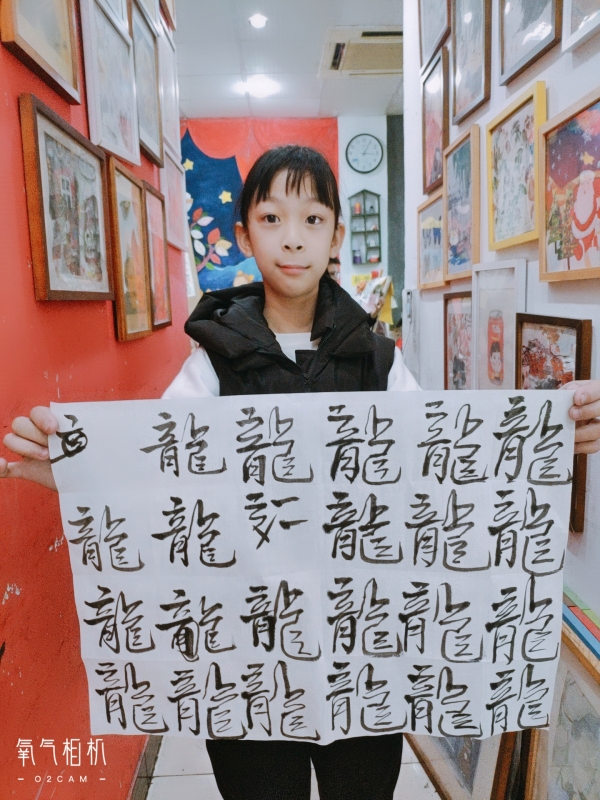 龍龍龍龍龍
龍龍龍龍龍
龍龍龍龍龍龍
龍龍龍龍龍龍
氧气相机
- O2CAM -